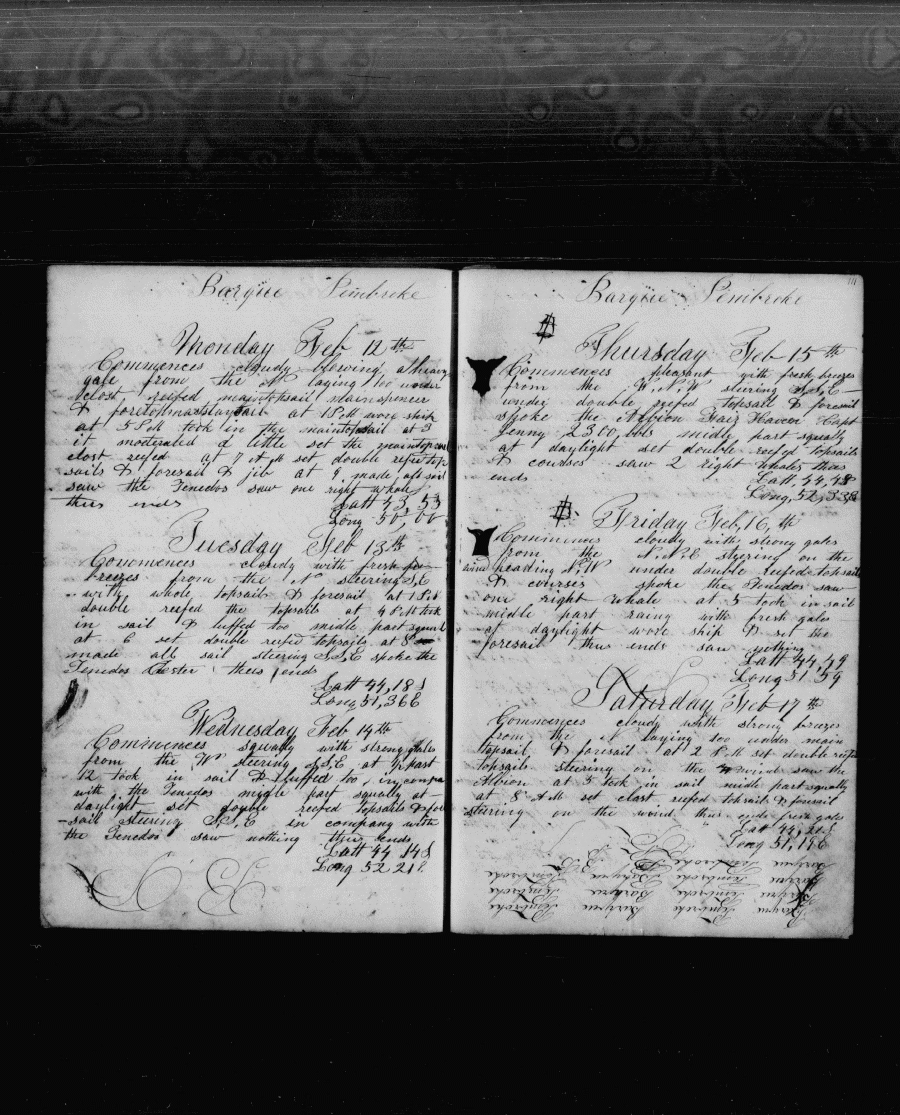 Barque Pembroke
Monday Feb 12th
Commences cloudy blowing a heavy
gale from the N laying too under
clost reefed maintopsail mainspencer
& foretopmaststaysail at 1 P.M wore ship
at 5 P.M took in the maintopsail at 3
it moderated a little set the maintopsail
clost reefed at 7 A M set double reefed top
sails & foresail & jib at 9 made all sail
saw the Tenedos saw one right whale
thus ends Latt 43,53
Long 50,00
Tuesday Feb 13th
Commences cloudy with fresh
breezes from the N steering S,E
with whole topsails & foresail at 1 P.M
double reefed the topsails at 4 P.M took
in sail & luffed too middle part squal
at 6 set double reefed topsails at 8
made all sail steering S,S,E spoke the
Tenedos thus ends
Latt 44,18 S
Long 51,36 E
Wednesday Feb 14th
Commences squally with strong gales
from the W steering S,S,E at ½ past
12 took in sail & luffed too in compa
with the Tenedos middle part squally at
daylight set double reefed topsails & fore
sail steering S,S,E in company with
the Tenedos saw nothing thus ends
Latt 44 14 S
Long 52 21
Barque Pembroke
Thursday Feb 15th
Commences pleasant with fresh breezes
from the W,N,W steering S,S,E
under double reefed topsails & foresail
spoke the Albion Fair Haven Capt
Jenny 2300, bbls midle part squally
at daylight set double reefed topsails
& courses saw 2 right whales thus
ends Latt, 44,48
Long, 52,33 E
Friday Feb, 16,th
Commences cloudy with strong gales
from the N.N.E steering on the
wind heading N,W under double reefed topsail
& courses spoke the Tenedos saw
one right whale at 5 took in sail
middle part raing with fresh gales
at daylight wore ship & set the
foresail thus ends saw nothing
Latt 44,49
Long 51 59
Saturday Feb 17th
Commences cloudy with strong breezes
from the laying too under main
topsail & foresail at 2 P.M set double reefed
topsails steering on the wind saw the
Albion at 5 took in sail midle part squally
at 8 A M set clost reefed topsails & foresail
steering on the wind thus ends fresh gales
Latt 44,20 S
Long 51,19 E
Barque Pembroke Barque Pembroke
Barque Pembroke Barque Pembroke
Barque Pembroke Barque Pembroke